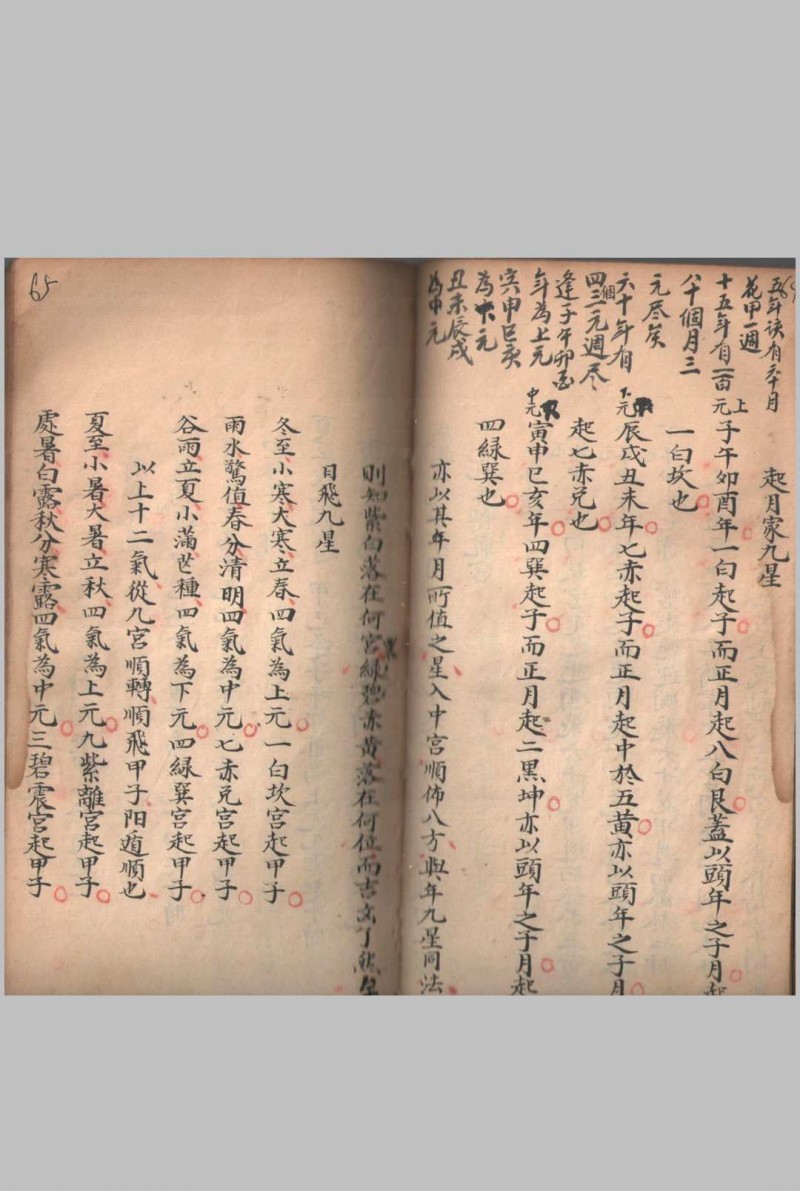 五年訣有六十月
花甲一週
十五年有一百
八十個月三
元尽矣
六十年有
四個三元週尽
逢子午卯酉
年為上元
寅申巳亥
為下元
丑未辰戌
為中元
起月家九星
上元子午卯酉年一白起子而正月起八白艮蓋以頭年之子月起
一白坎也
下元辰戌丑未年七赤起子而正月起中於五黄亦以頭年之子月
起七赤兌也
中元寅申巳亥年四巽起子而正月起二黑坤亦以頭年之子月起
四緑巽也
亦以其年月所值之星入中宮順佈八方與年九星同法
則知紫白落在何宮緑碧赤黄落在何位而吉凶了然
日飛九星
冬至小寒大寒立春四氣為上元一白坎宮起甲子
雨水驚值春分清明四氣為中元七赤兌宮起甲子
谷雨立夏小滿芒種四氣為下元四緑巽宮起甲子
以上十二氣從九宮順轉順飛甲子阳遁順也
夏至小暑大暑立秋四氣為上元九紫離宮起甲子
處暑白露秋分寒露四氣為中元三碧震宮起甲子
65